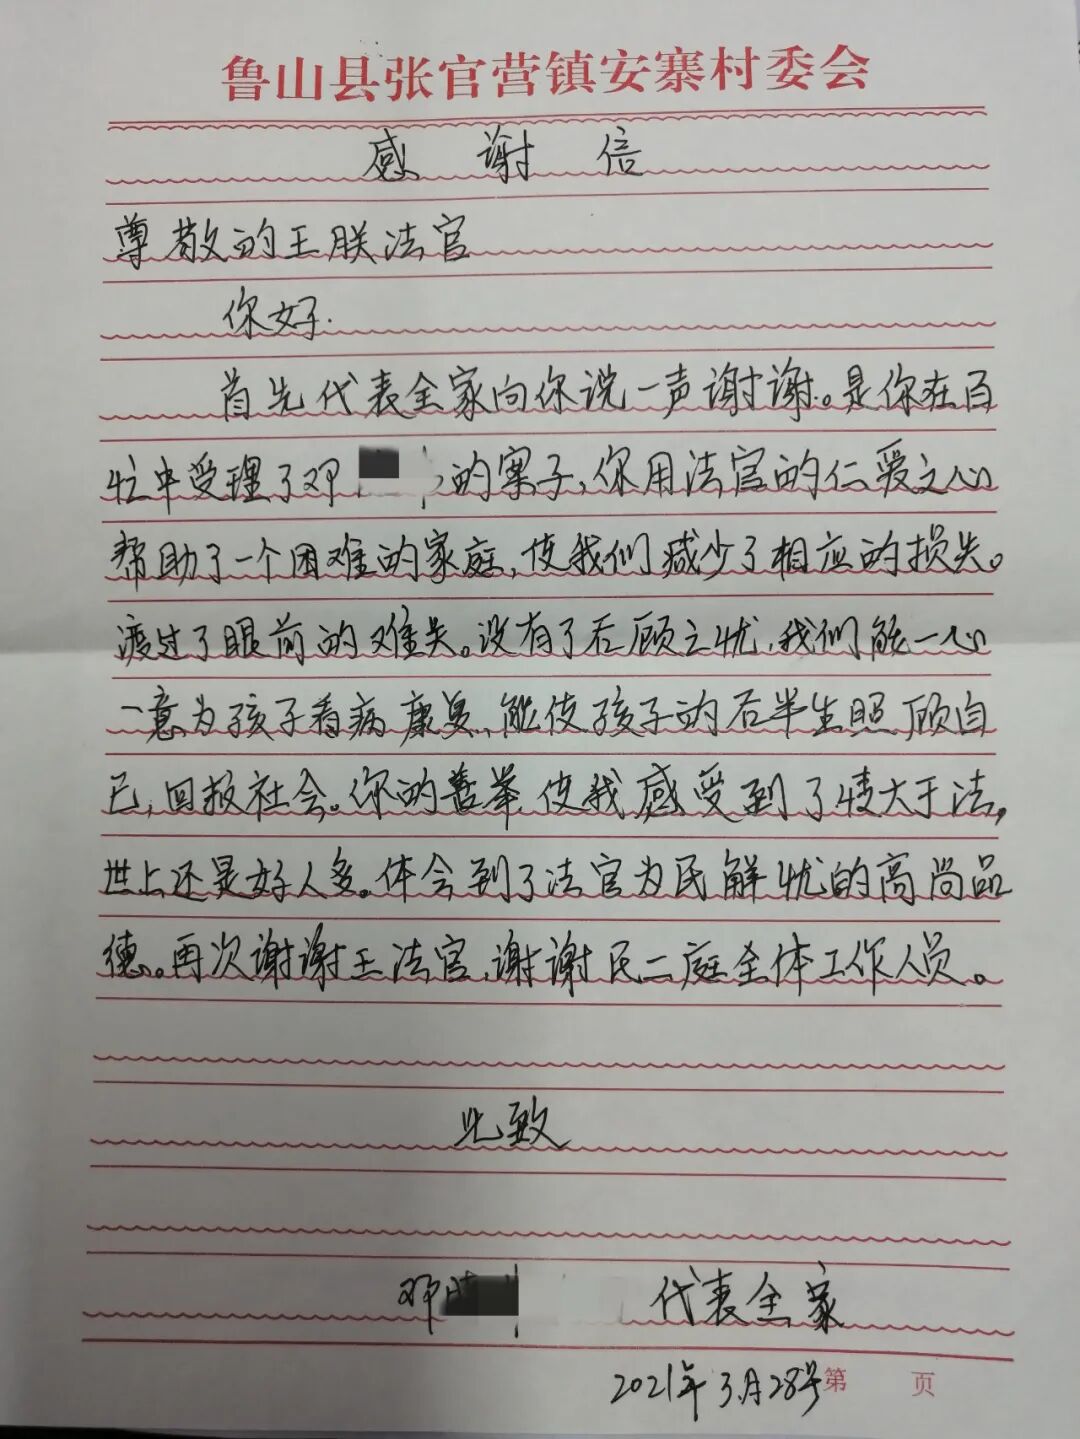 鲁山县张官营镇安寨村委会
感谢信
尊敬的王朕法官
你好.
首先代表全家向你说一声谢谢。是你在百
忙中受理了邓 的案子,你用法官的仁爱之心
帮助了一个困难的家庭,使我们减少了相应的损失。
渡过了眼前的难关。没有了后顾之忧,我们能一心
一意为孩子看病康复,能使孩子的后半生照顾自
己,回报社会。你的善举使我感受到了情大于法,
世上还是好人多。体会到了法官为民解忧的高尚品
德。再次谢谢王法官,谢谢民二庭全体工作人员。
此致
邓 代表全家
2021年3月28号第 页